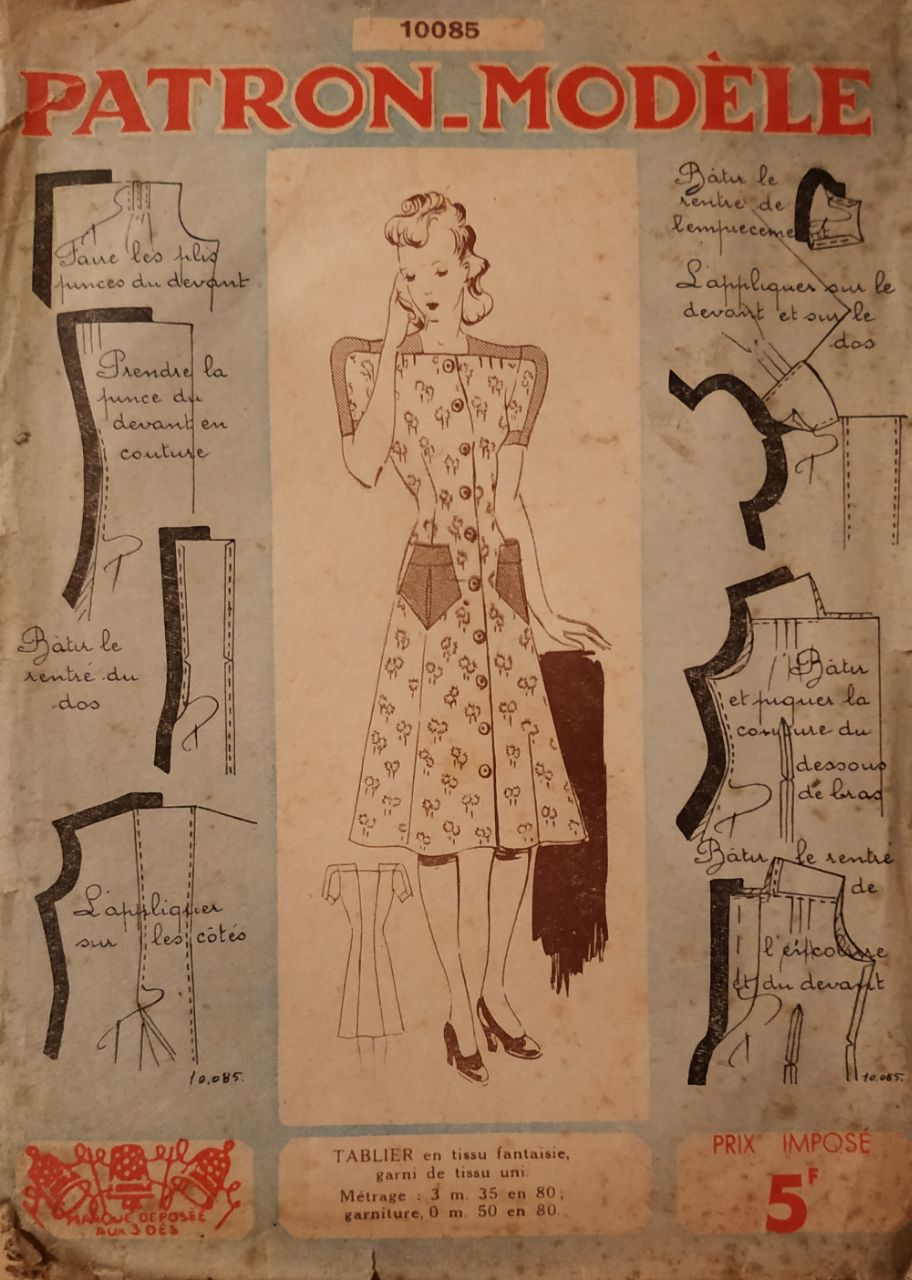 10085
PATRON-MODÈLE
Faire les plis
pinces du devant
Prendre la
pince du
devant en
couture
Bâtir le
rentré du
dos
L'appliquer
sur les côtés
10,085.
Bâtir le
rentré de
l'empiècement
L'appliquer sur le
devant et sur le
dos
Bâtir
et piquer la
couture du
dessous
de bras
Bâtir le rentré
de
l'encolure
et du devant
10.085.
MARQUE DEPOSÉE
AUX 3 DÉS
TABLIER en tissu fantaisie,
garni de tissu uni.
Métrage : 3 m. 35 en 80 ;
garniture, 0 m. 50 en 80.
PRIX IMPOSÉ
5F